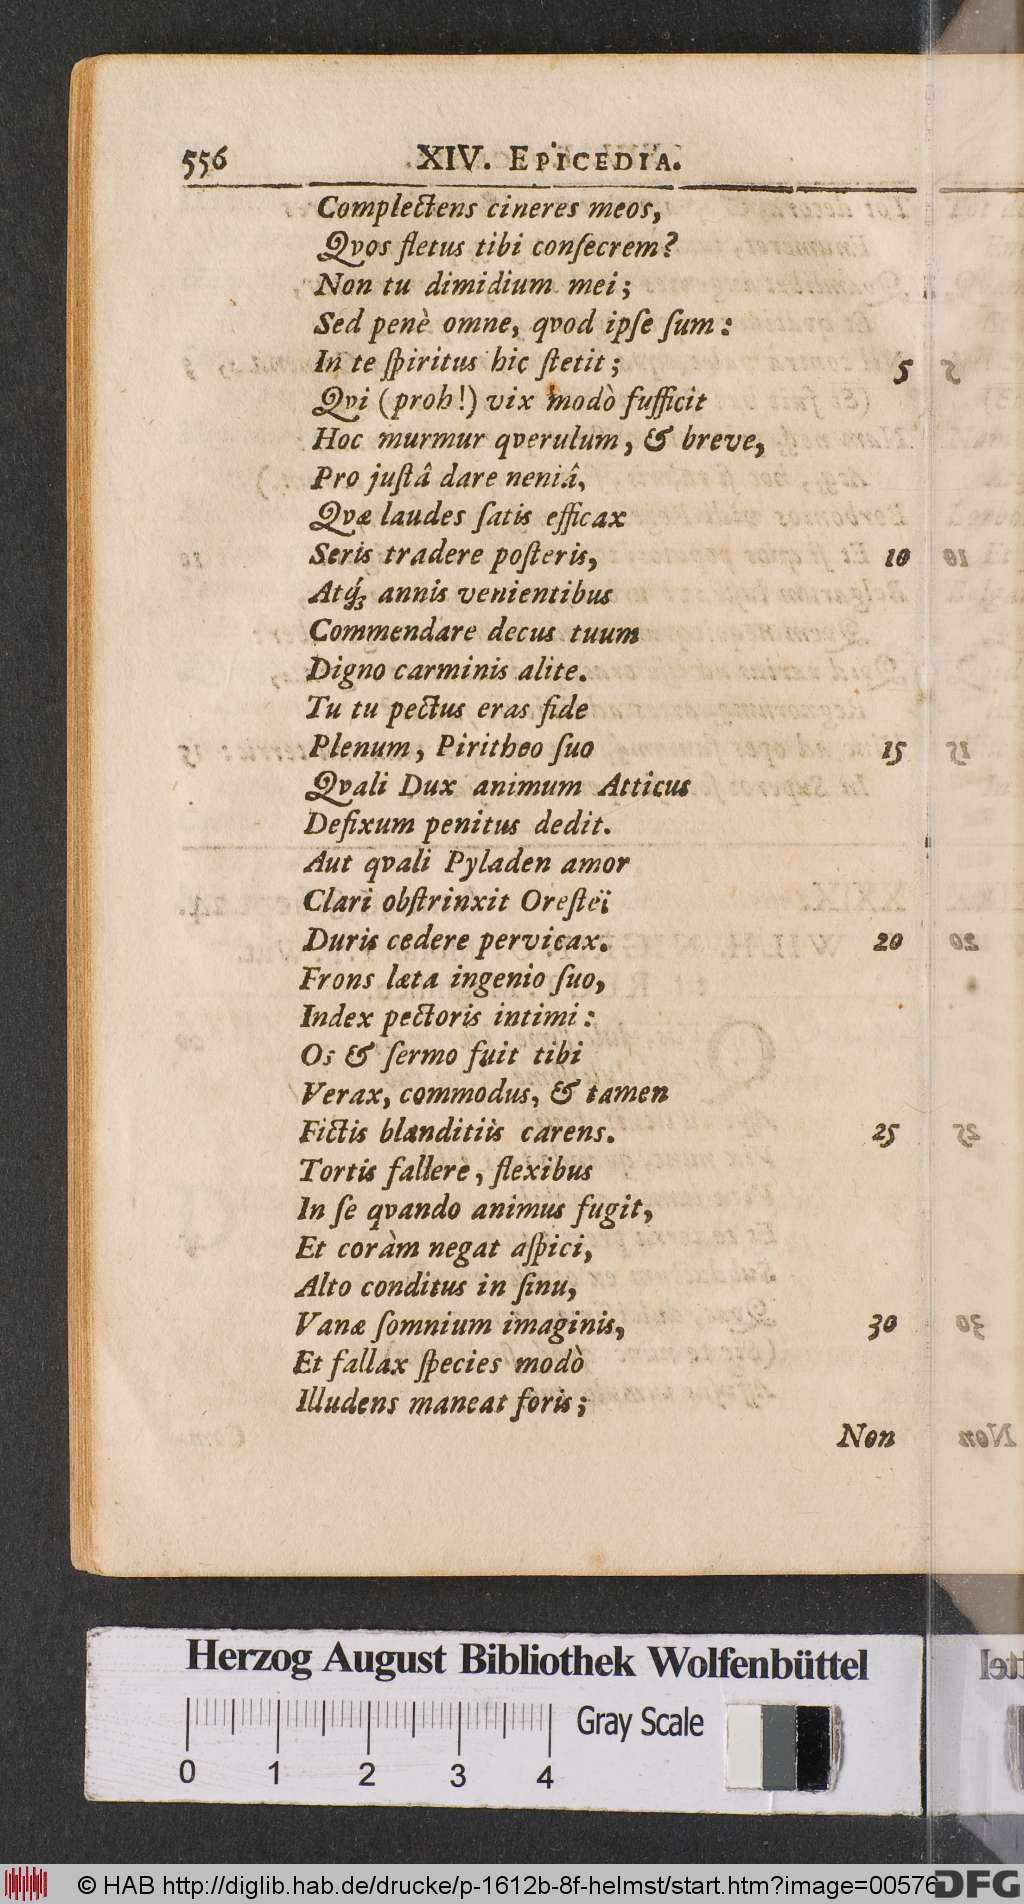 556 XIV. EPICEDIA.
Complectens cineres meos,
Qvos fletus tibi conſecrem?
Non tu dimidium mei;
Sed penè omne, qvod ipſe ſum:
In te ſpiritus hic ſtetit; 5
Qvi (proh!) vix modò ſufficit
Hoc murmur qverulum, & breve,
Pro juſtâ dare neniâ,
Qvæ laudes ſatis efficax
Seris tradere poſteris, 10
Atq́; annis venientibus
Commendare decus tuum
Digno carminis alite.
Tu tu pectus eras fide
Plenum, Piritheo ſuo 15
Qvali Dux animum Atticus
Defixum penitus dedit.
Aut qvali Pyladen amor
Clari obſtrinxit Oreſteï
Duris cedere pervicax. 20
Frons læta ingenio ſuo,
Index pectoris intimi:
Os & ſermo fuit tibi
Verax, commodus, & tamen
Fictis blanditiis carens. 25
Tortis fallere, flexibus
In ſe qvando animus fugit,
Et coràm negat aſpici,
Alto conditus in ſinu,
Vanæ ſomnium imaginis, 30
Et fallax ſpecies modò
Illudens maneat foris;
Non
Herzog August Bibliothek Wolfenbüttel
Gray Scale
0 1 2 3 4
© HAB http://diglib.hab.de/drucke/p-1612b-8f-helmst/start.htm?image=00576
DFG